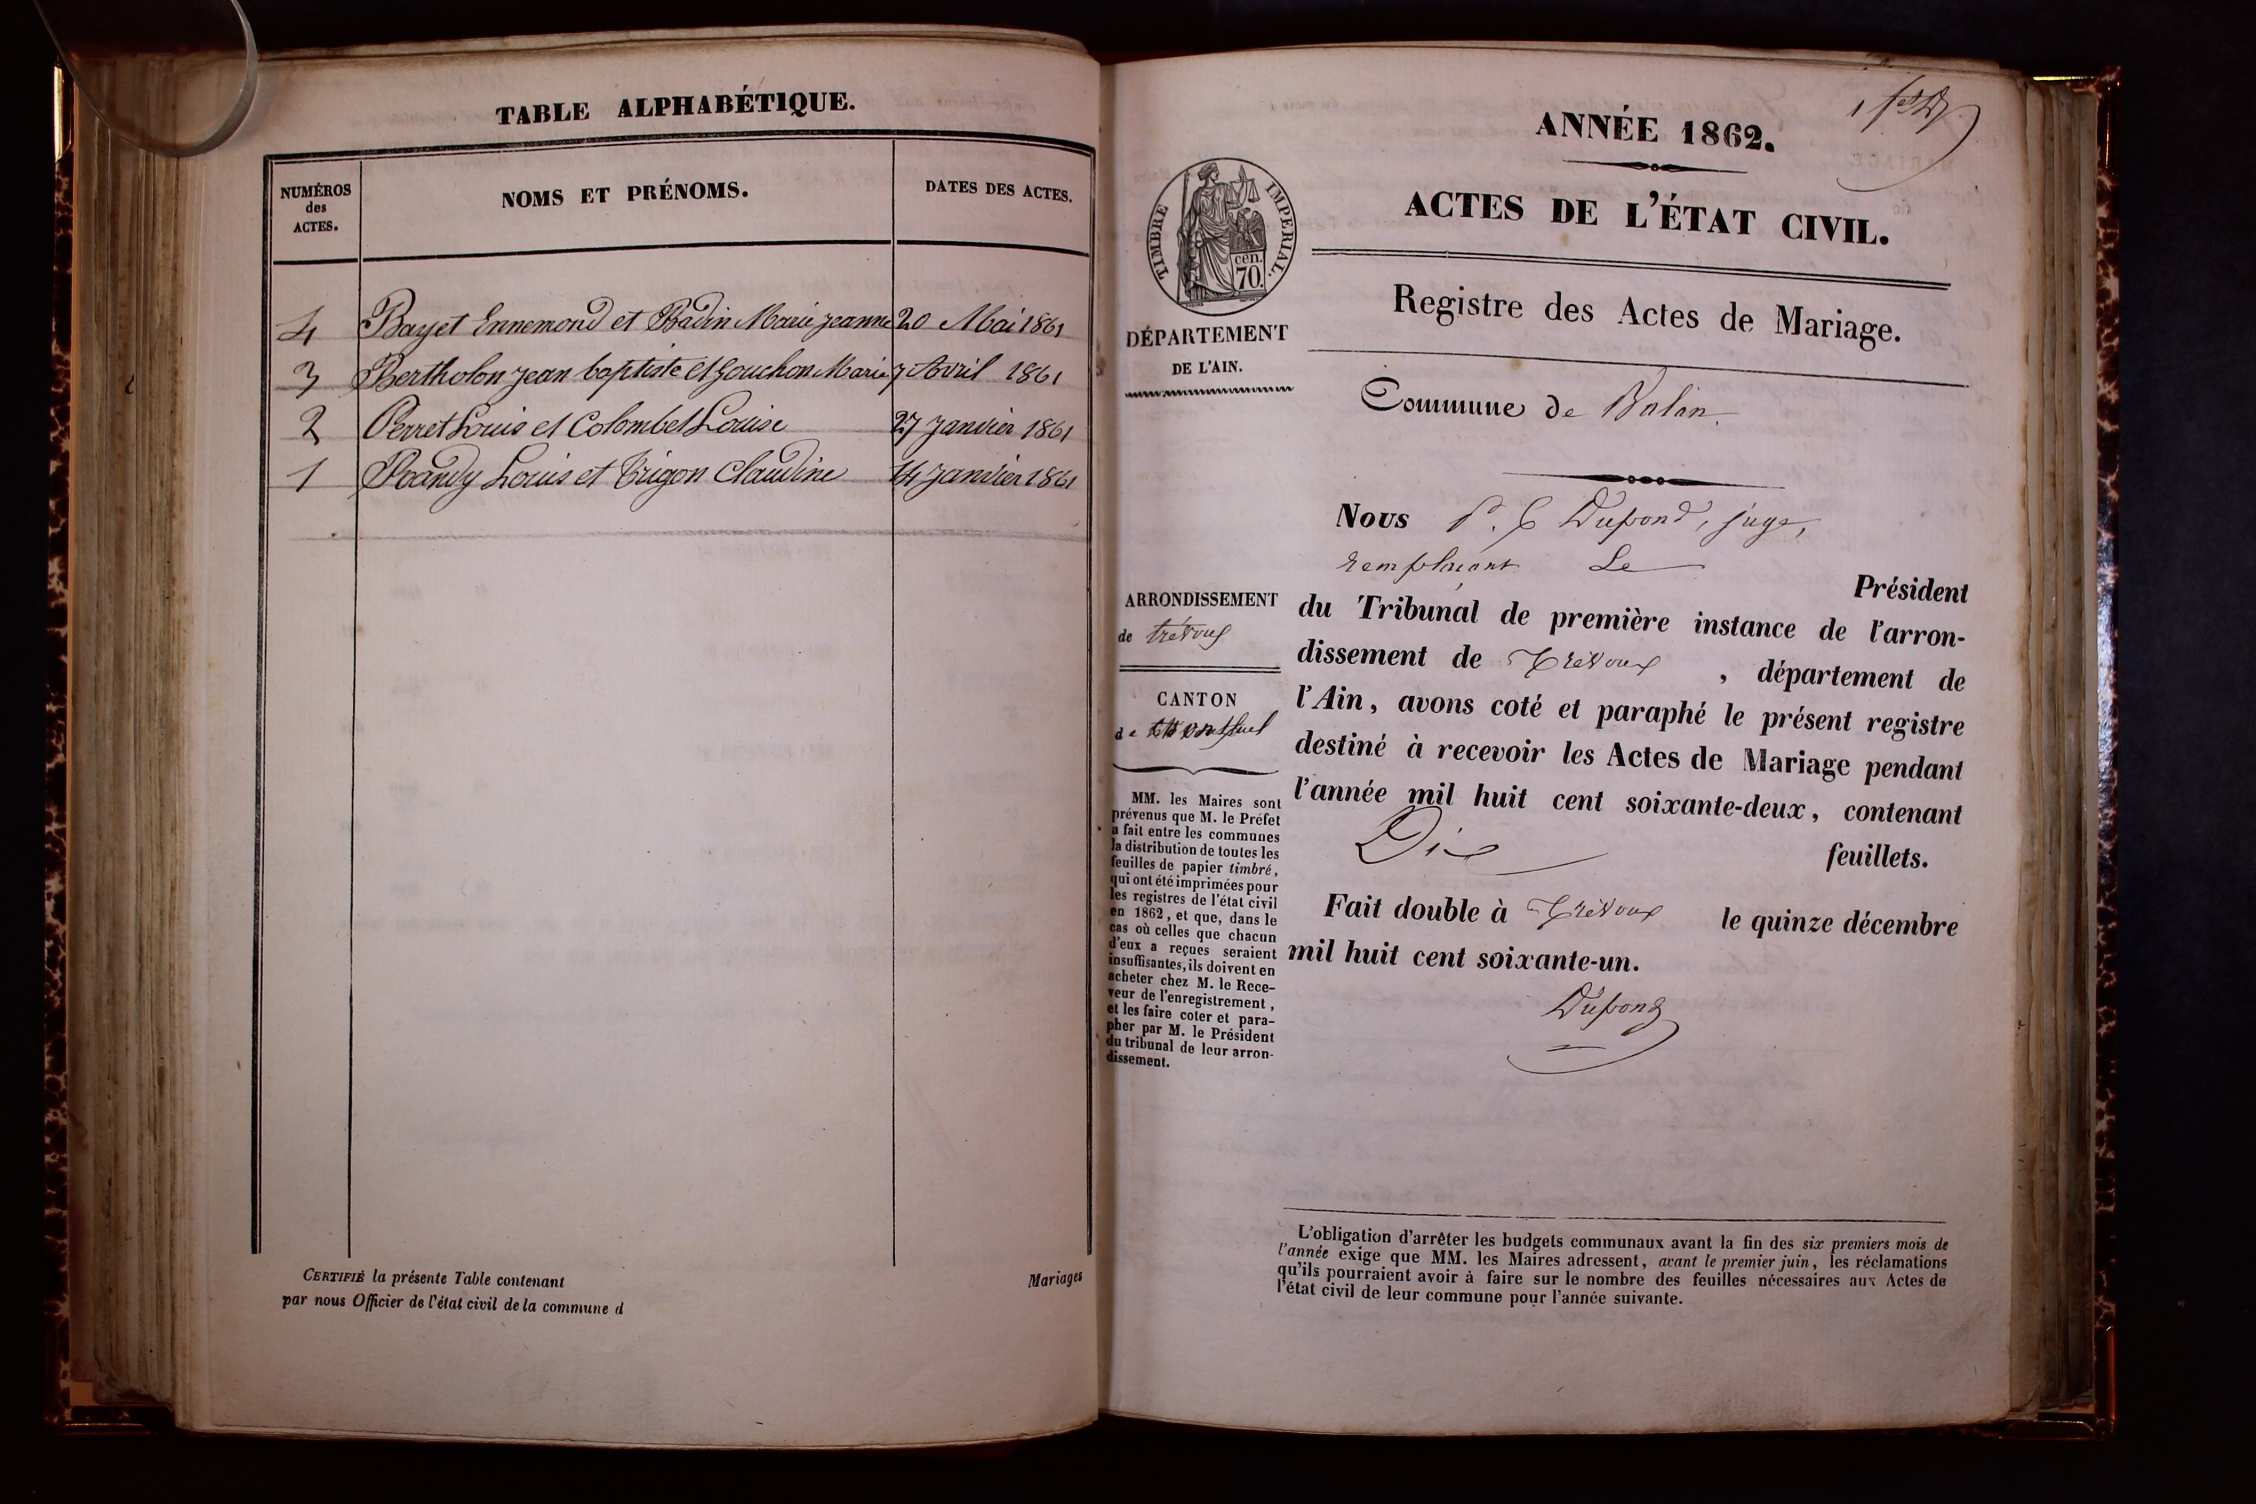 TABLE ALPHABÉTIQUE.
NUMÉROS
des
ACTES.
NOMS ET PRÉNOMS.
DATES DES ACTES.
4 Bayet Ennemond et Badin Marie jeanne 20 Mai 1861
3 Bertholon jean baptiste et Gouchon Marie 7 Avril 1861
2 Perret Louis et Colombet Louise 27 janvier 1861
1 Randy Louis et Trigon Claudine 14 janvier 1861
CERTIFIÉ la présente Table contenant
Mariages
par nous Officier de l'état civil de la commune d
ANNÉE 1862.
ACTES DE L'ÉTAT CIVIL.
TIMBRE IMPERIAL.
cen.
70.
Registre des Actes de Mariage.
DÉPARTEMENT
DE L'AIN.
Commune de Balan
ARRONDISSEMENT
de trévoux
CANTON
de Montluel
MM. les Maires sont
prévenus que M. le Préfet
a fait entre les communes
la distribution de toutes les
feuilles de papier timbré,
qui ont été imprimées pour
les registres de l'état civil
en 1862, et que, dans le
cas où celles que chacun
d'eux a reçues seraient
insuffisantes, ils doivent en
acheter chez M. le Rece-
veur de l'enregistrement,
et les faire coter et para-
pher par M. le Président
du tribunal de leur arron-
dissement.
Nous Dupond, juge,
remplaçant Le
Président
du Tribunal de première instance de l'arron-
dissement de Trévoux, département de
l'Ain, avons coté et paraphé le présent registre
destiné à recevoir les Actes de Mariage pendant
l'année mil huit cent soixante-deux, contenant
Dix feuillets.
Fait double à Trévoux le quinze décembre
mil huit cent soixante-un.
Dupond
L'obligation d'arrêter les budgets communaux avant la fin des six premiers mois de
l'année exige que MM. les Maires adressent, avant le premier juin, les réclamations
qu'ils pourraient avoir à faire sur le nombre des feuilles nécessaires aux Actes de
l'état civil de leur commune pour l'année suivante.